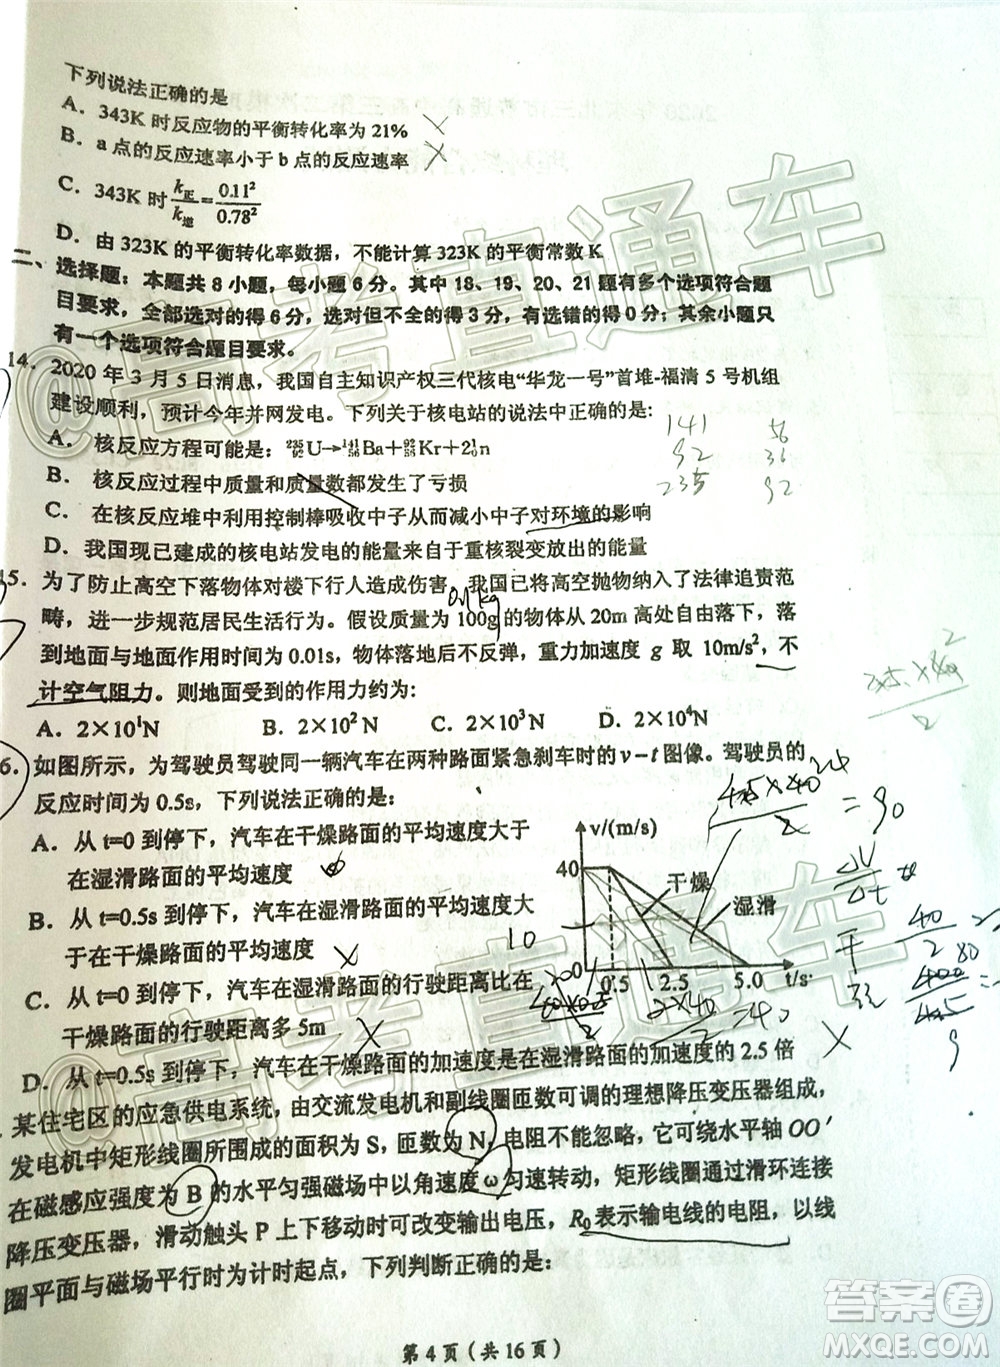 下列说法正确的是
A. 343K 时反应物的平衡转化率为 21%
B. a 点的反应速率小于 b 点的反应速率
C. 343K 时 k正/k逆 = 0.11²/0.78²
D. 由 323K 的平衡转化率数据，不能计算 323K 的平衡常数 K
二、选择题：本题共 8 小题，每小题 6 分。其中 18、19、20、21 题有多个选项符合题
目要求，全部选对的得 6 分，选对但不全的得 3 分，有选错的得 0 分；其余小题只
有一个选项符合题目要求。
14. 2020 年 3 月 5 日消息，我国自主知识产权三代核电“华龙一号”首堆-福清 5 号机组
建设顺利，预计今年并网发电。下列关于核电站的说法中正确的是:
A. 核反应方程可能是：²³⁵₉₂U→¹⁴¹₅₆Ba+⁹²₃₆Kr+2¹₀n
B. 核反应过程中质量和质量数都发生了亏损
C. 在核反应堆中利用控制棒吸收中子从而减小中子对环境的影响
D. 我国现已建成的核电站发电的能量来自于重核裂变放出的能量
141 56
92 36
235 92
15. 为了防止高空下落物体对楼下行人造成伤害，我国已将高空抛物纳入了法律追责范
0.1kg
畴，进一步规范居民生活行为。假设质量为 100g 的物体从 20m 高处自由落下，落
到地面与地面作用时间为 0.01s，物体落地后不反弹，重力加速度 g 取 10m/s²，不
计空气阻力。则地面受到的作用力约为:
A. 2×10¹N B. 2×10² N C. 2×10³N D. 2×10⁴N
6. 如图所示，为驾驶员驾驶同一辆汽车在两种路面紧急刹车时的 v－t 图像。驾驶员的
反应时间为 0.5s，下列说法正确的是:
A. 从 t=0 到停下，汽车在干燥路面的平均速度大于
在湿滑路面的平均速度
B. 从 t=0.5s 到停下，汽车在湿滑路面的平均速度大
于在干燥路面的平均速度
C. 从 t=0 到停下，汽车在湿滑路面的行驶距离比在
干燥路面的行驶距离多 5m
D. 从 t=0.5s 到停下，汽车在干燥路面的加速度是在湿滑路面的加速度的 2.5 倍
v/(m/s)
40
干燥
湿滑
0 0.5 2.5 5.0 t/s
10
=90
2×40/2=40
某住宅区的应急供电系统，由交流发电机和副线圈匝数可调的理想降压变压器组成，
发电机中矩形线圈所围成的面积为 S，匝数为 N，电阻不能忽略，它可绕水平轴 OO′
在磁感应强度为 B 的水平匀强磁场中以角速度 ω 匀速转动，矩形线圈通过滑环连接
降压变压器，滑动触头 P 上下移动时可改变输出电压，R₀ 表示输电线的电阻，以线
圈平面与磁场平行时为计时起点，下列判断正确的是:
第 4 页（共 16 页）
@高考直通车
@高考直通车
答案圈
MXQE.COM